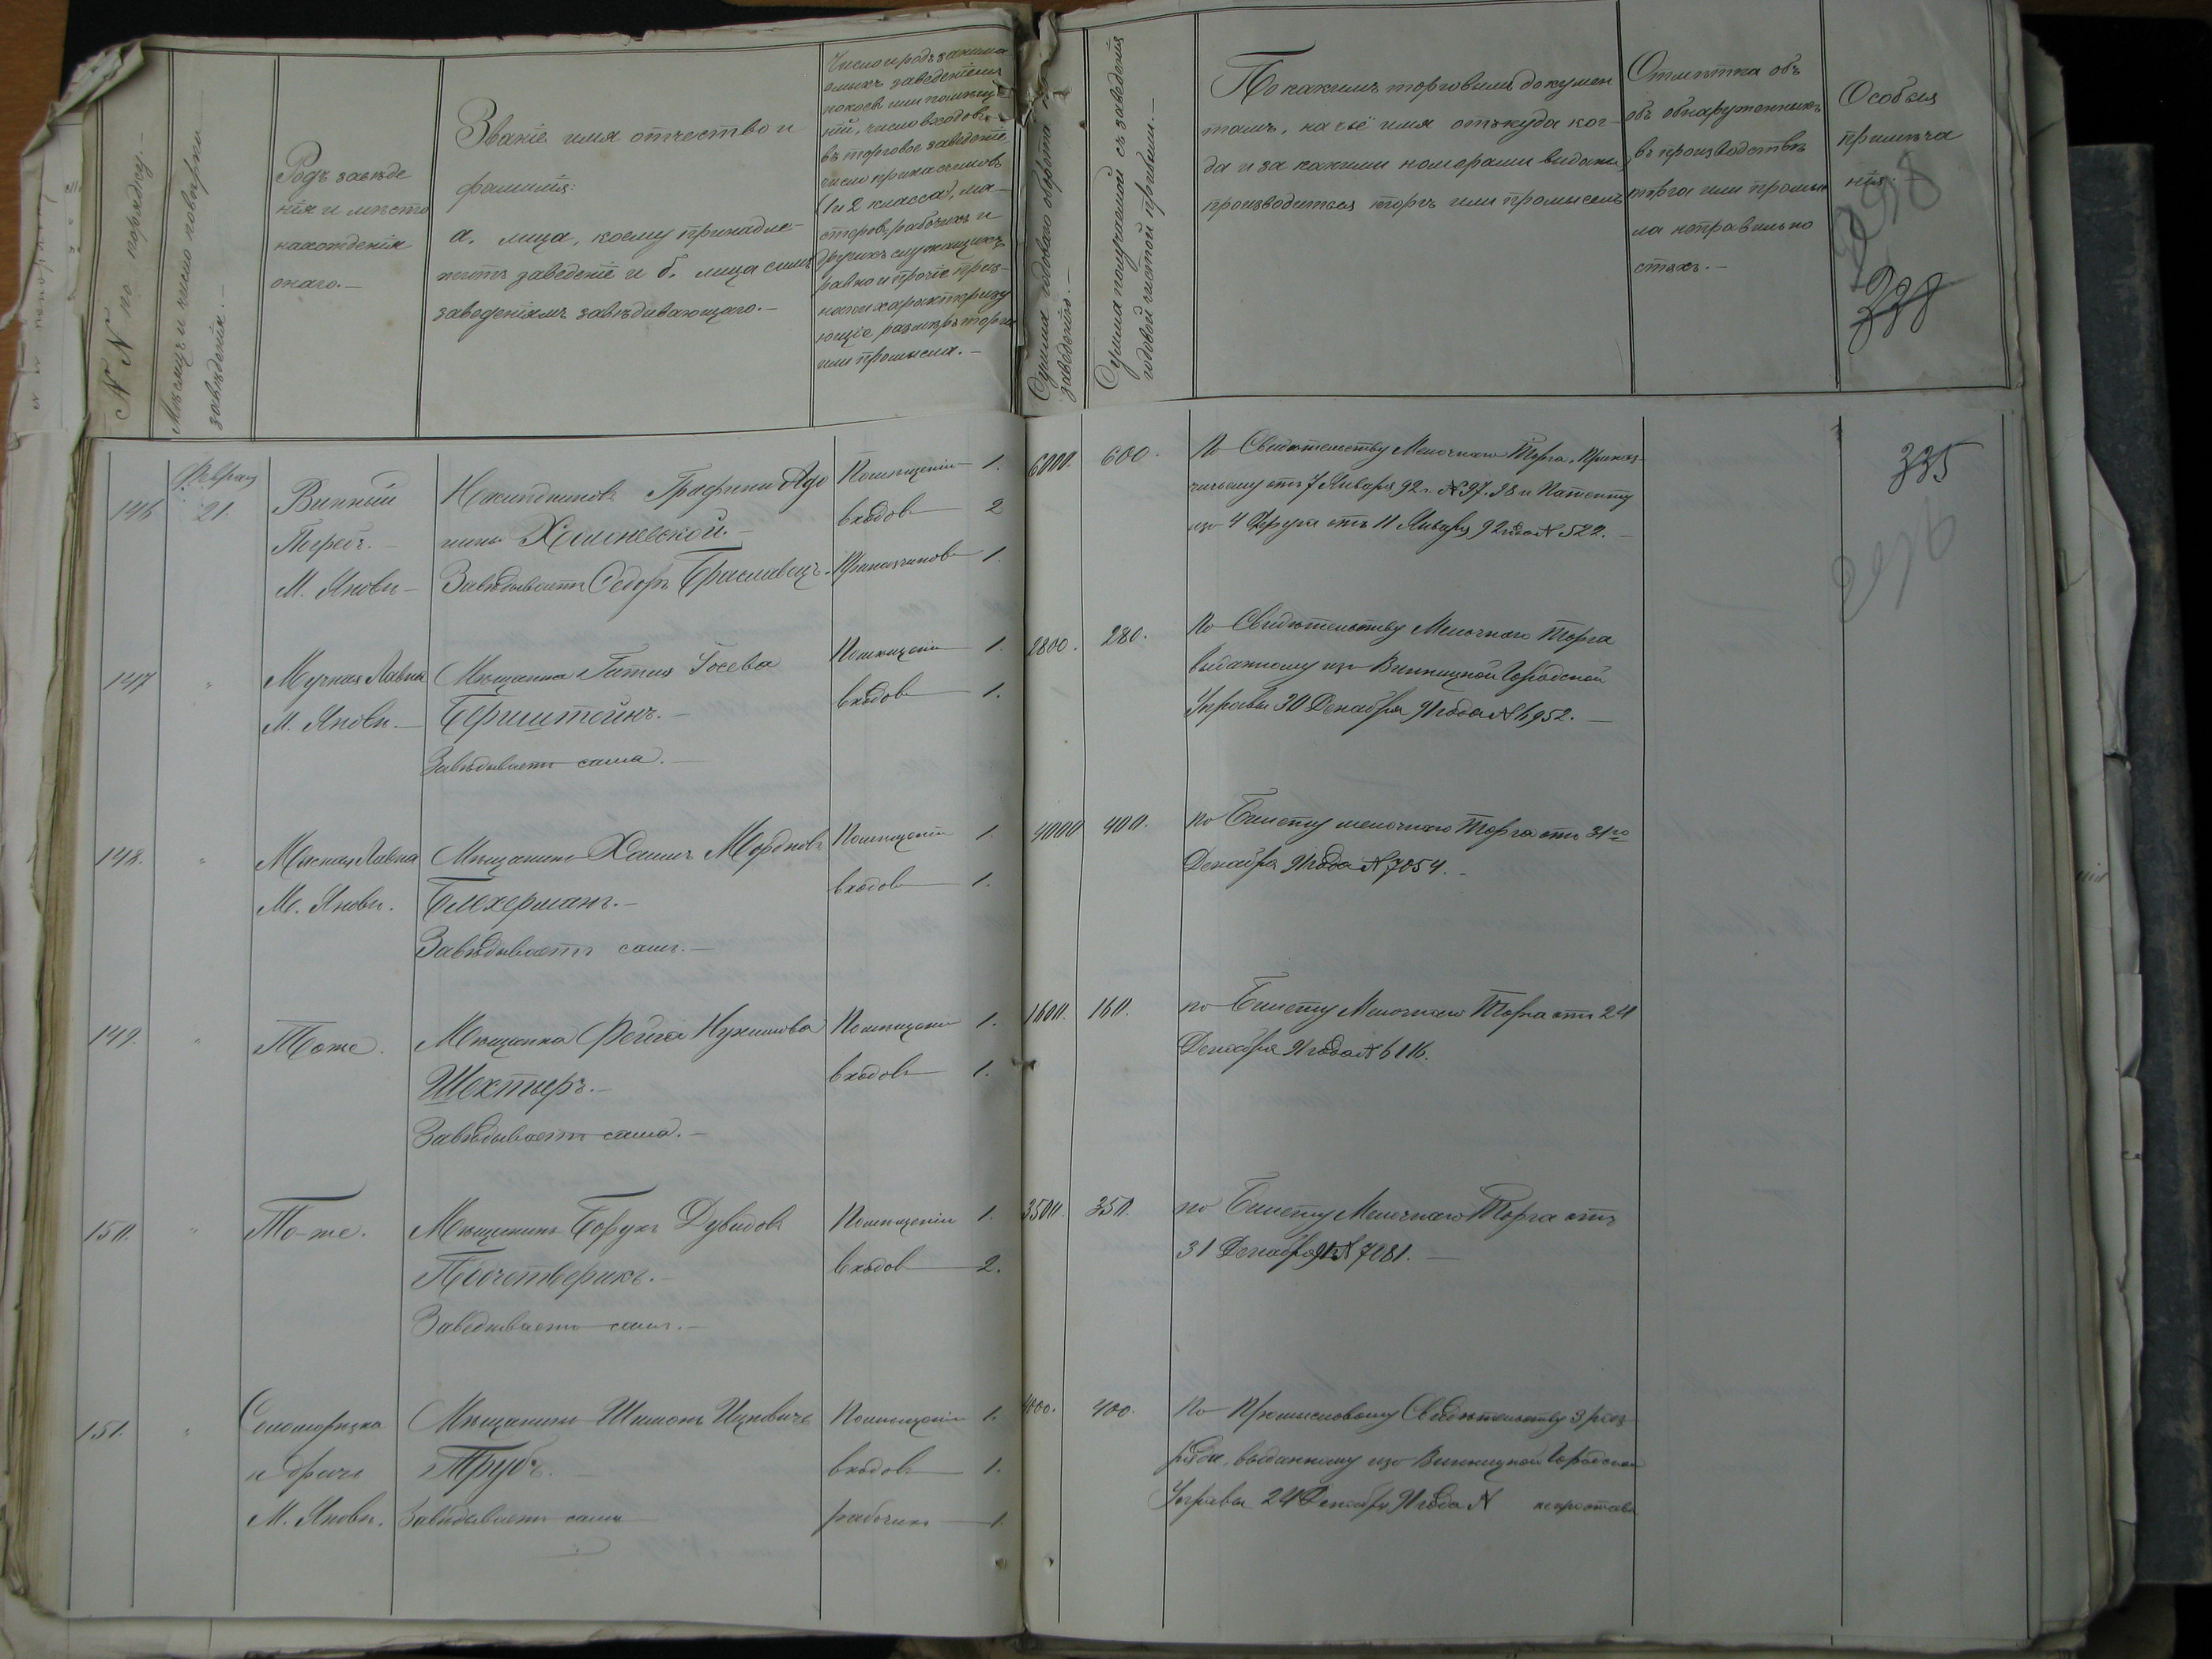 N N по порядку.
Мѣсяцъ и число повѣрки
завѣденія. —
Родъ завѣде
нія и мѣсто
нахожденія
онаго. —
Званіе имя отчество и
фамилія:
а, лица, коему принадле-
житъ заведеніе и б, лица симъ
заведеніемъ завѣдивающаго. —
Число и родъ занима
емыхъ заведеніемъ
покоевъ или помѣще
ній, число входовъ
въ торговое заведеніе,
число прикащиковъ
(1 и 2 класса), ма-
стеровъ, рабочихъ и
другихъ служащихъ
равно и прочіе приз-
наки характеризу
ющіе размѣръ торга
или промысла. —
Сумма годоваго оборота по
заведенію. —
Сумма получаемой съ заведенія
годовой чистой прибыли. —
По какимъ торговымъ докумен
тамъ, на чьё имя откуда ког-
да и за какими номерами выданы,
производится торгъ или промыселъ
Отмѣтка объ
объ обнаруженныхъ
въ производствѣ
торга или промыс
ла неправильно
стяхъ. —
Особыя
примѣча
нія.
298
338
335
296
146
Февраля
21.
Винный
Погребъ. —
М. Яновъ —
Графини Адо
Холоневской. —
Завѣдываетъ Федоръ Браславецъ.
Помѣщеніи 1.
входовъ 2
Прикащиковъ 1.
6000. 600.
По Свидѣтельству Мелочнаго Торга, Приказ-
чичьему отъ 7 Января 92 г. № 97. 98 и Патенту
изъ 4 Округа отъ 11 Января 92 года № 522. —
147
"
Мучная Лавка
М. Яновъ. —
Мѣщанка Гитля Іосева
Бернштейнъ. —
Завѣдываетъ сама. —
Помѣщеніи 1.
входовъ 1.
2800. 280.
По Свидѣтельству Мелочнаго Торга
выданному изъ Винницкой Городской
Управы 30 Декабря 91 года № 6952. —
148.
"
Мясная Лавка
М. Яновъ.
Мѣщанинъ Хаимъ Мордковъ
Блехерманъ. —
Завѣдываетъ самъ. —
Помѣщеніи 1.
входовъ 1.
4000 400.
по Билету мелочнаго Торга отъ 31го
Декабря 91 года № 7054. —
149.
"
Тоже.
Мѣщанка Фейга Нухимова
Шехтеръ. —
Завѣдываетъ сама. —
Помѣщеніи 1.
входовъ 1.
1600. 160.
по Билету Мелочнаго Торга отъ 24
Декабря 91 года № 6116.
150.
"
То-же.
Мѣщанинъ Борухъ Дувидовъ
Почетверикъ. —
Заведываетъ самъ. —
Помѣщеніи 1.
Входовъ 2.
3500. 350.
по Билету Мелочнаго Торга отъ
31 Декабря 91 № 7081. —
151.
"
М. Яновъ.
Мѣщанинъ Шимонъ Ицковичъ
Трубъ.
Завѣдываетъ самъ
Помѣщеніи 1.
входовъ 1.
рабочихъ 1.
4000. 400.
По Промысловому Свидѣтельству 3 раз-
ряда, выданному изъ Винницкой Городской
Управы 24 Декабря 91 года №